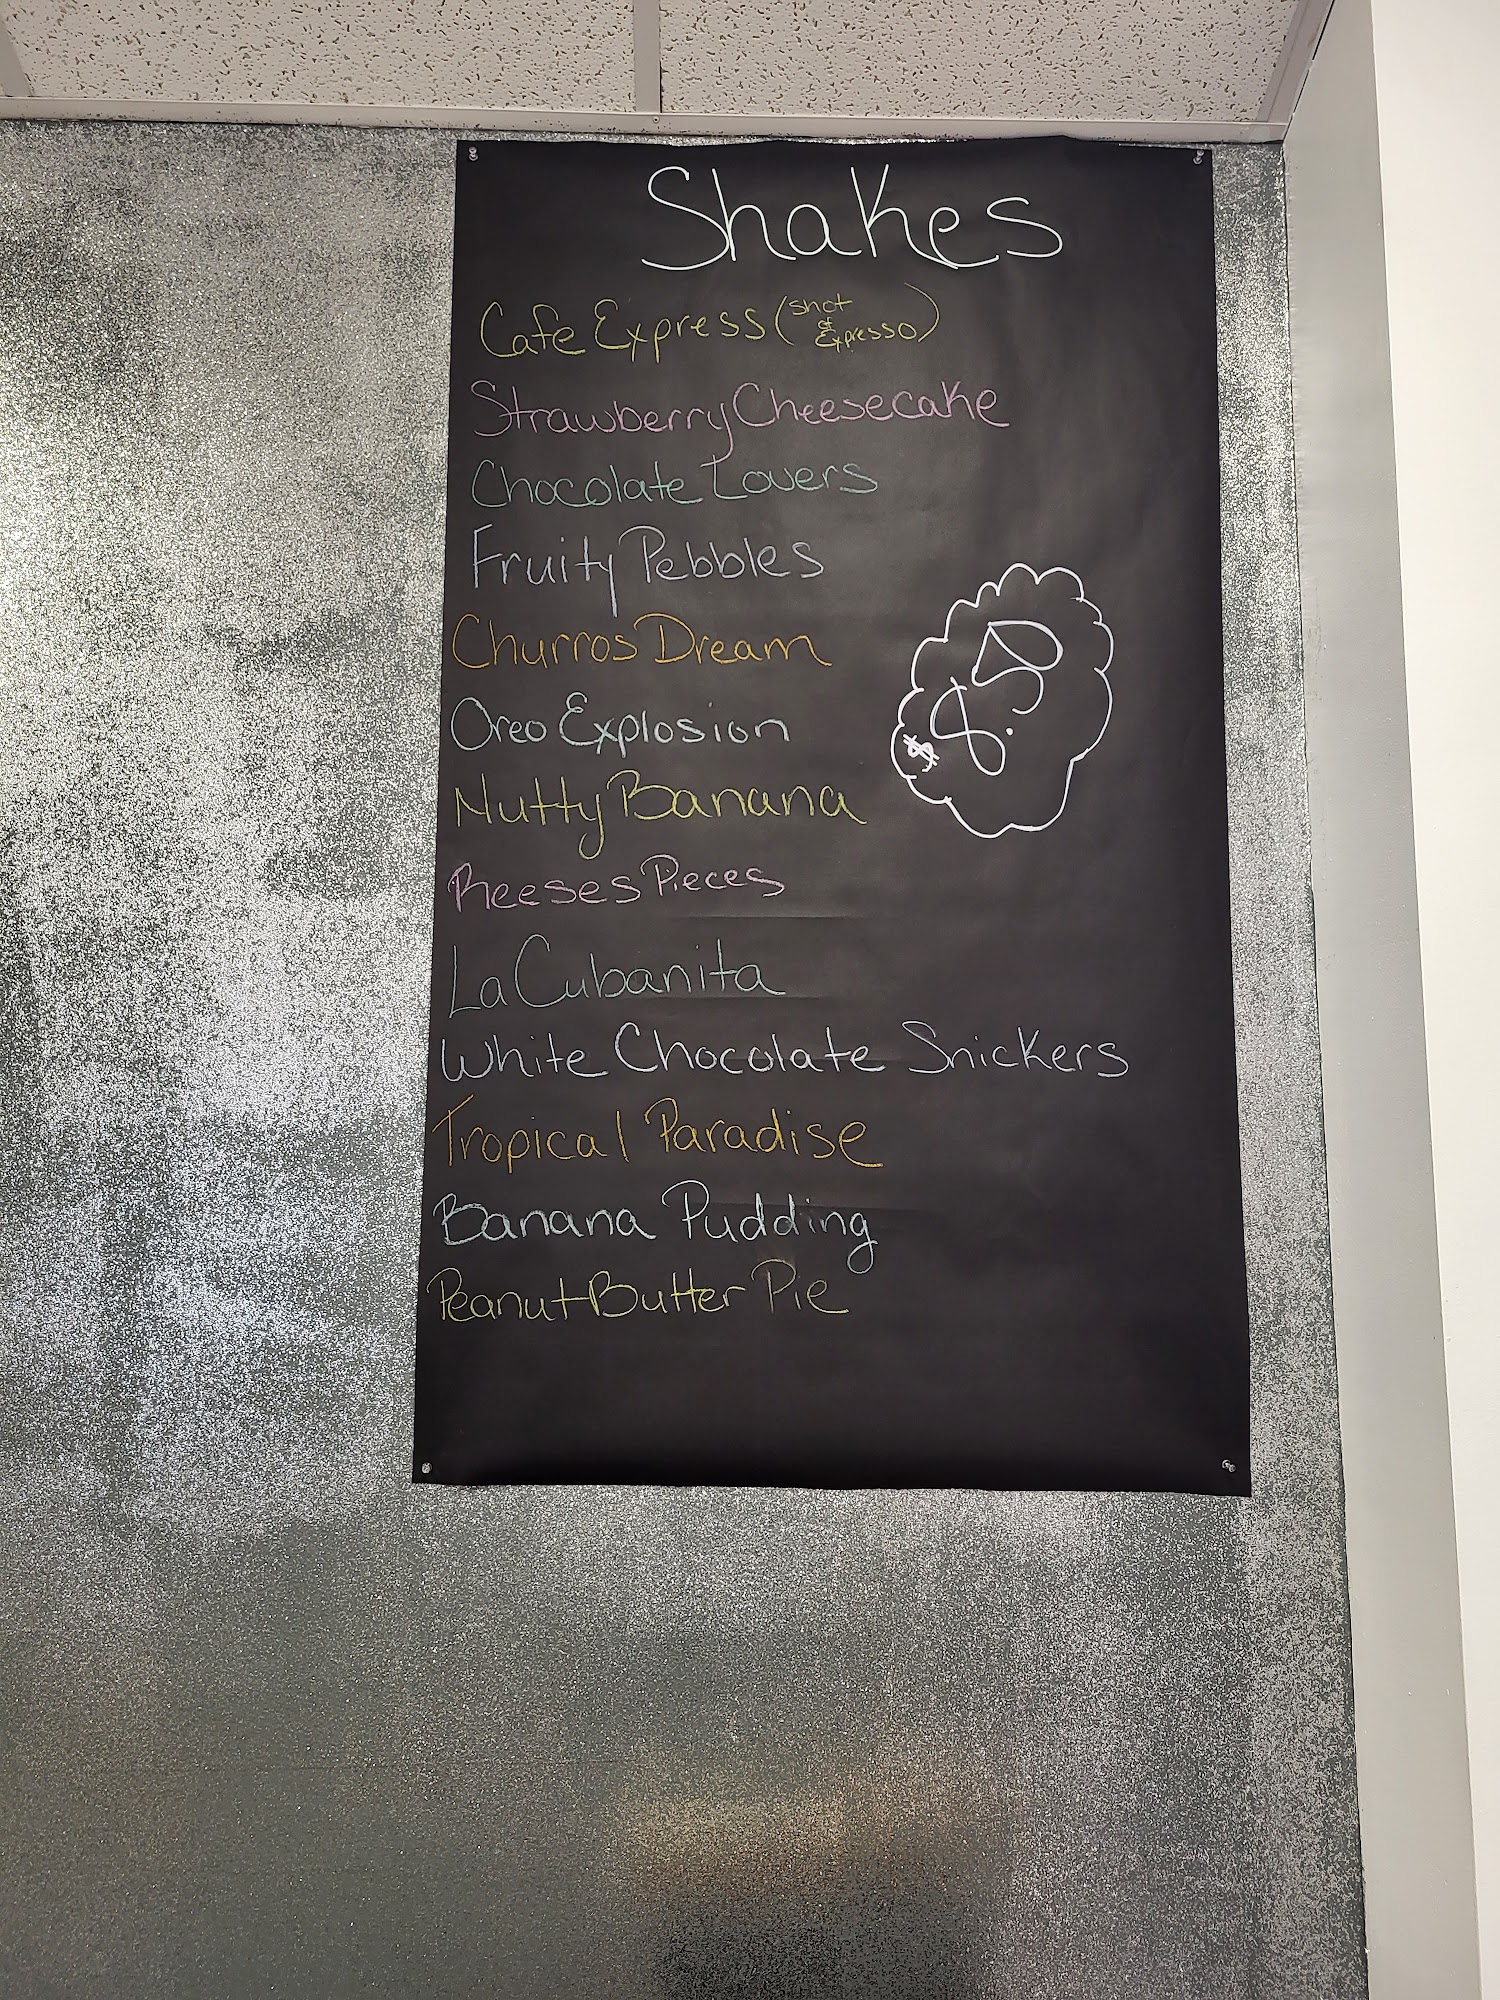 Shakes
Cafe Express (shot of Expresso)
Strawberry Cheesecake
Chocolate Lovers
Fruity Pebbles
Churros Dream
Oreo Explosion
Nutty Banana
$8.50
Reeses Pieces
La Cubanita
White Chocolate Snickers
Tropical Paradise
Banana Pudding
Peanut Butter Pie